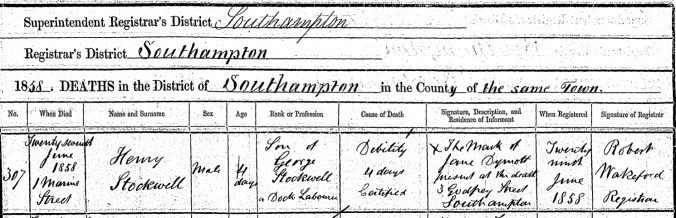 Superintendent Registrar's District Southampton
Registrar's District Southampton
1858. DEATHS in the District of Southampton in the County of the same Town.
No. When Died Name and Surname Sex Age Rank or Profession Cause of Death Signature, Description, and Residence of Informant When Registered Signature of Registrar
307
Twenty seventh
June
1858
1 Marine
Street
Henry
Stockwell
Male
4
days
Son of
George
Stockwell
a Dock Labourer
Debility
4 days
Certified
X The Mark of
Jane Dymott
present at the death
3 Godfrey Street
Southampton
Twenty
ninth
June
1858
Robert
Wakeford
Registrar